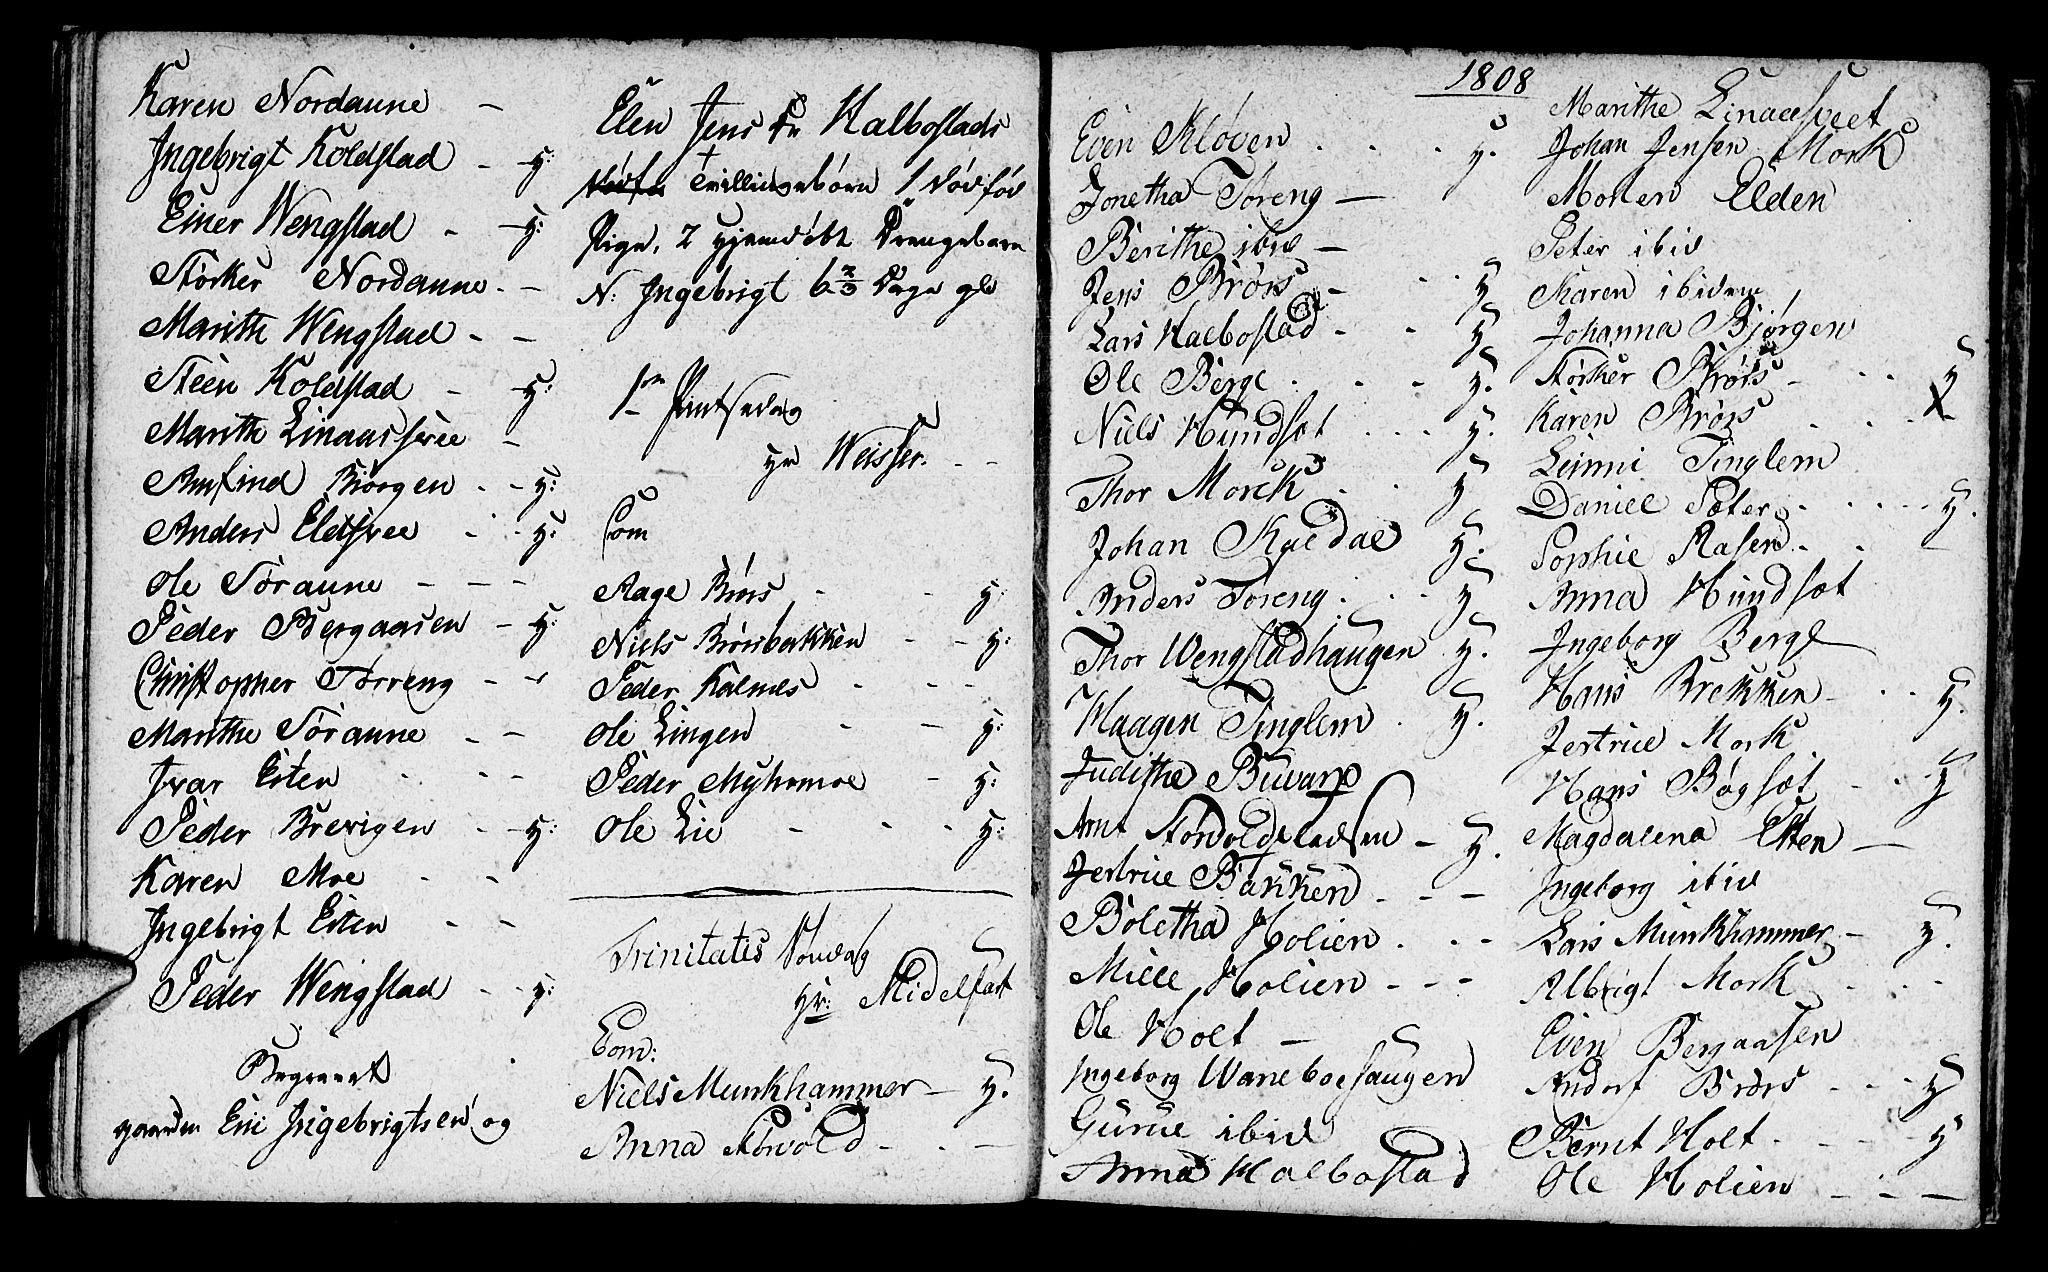 Karen Nordaune -
Ingebrigt Koldstad - y:
Einer Wengstad - y:
Størker Nordaune - -
Marith Wengstad - -
Steen Koldstad - y:
Marith Linaasfvee -
Arnfind Biörgen - - y:
Anders Eldfvee - - y:
Ole Søraune - - -
Peder Bergaasen - y:
Christopher Tørreng - -
Marithe Søraune - -
Ivar Esten - -
Peder Brevigen - y:
Karen Moe - -
Ingebrigt Esten - -
Peder Wengstad - - y:
Begravet
gaarden Eric Ingebrigtsen og
Elen Jens Dr Halbostads
Trillingebörn 1 dödföd
Pige, 2 hjemdöbt Drengebørn
N: Ingebrigt 6 2/3 Dage gl
1ste Pintsedag
hr Weisser. - -
Com
Aage Brörs - - y:
Niels Brörsbakken - - y:
Peder Kalnæs - - -
Ole Lingen - - y:
Peder Myhrmoe - y:
Ole Lie - - - y:
Trinitatis Søndag
hr: Midelfart
Com:
Niels Munkhammer - y.
Anna Størvold - - -
1808
Even Kløven . . . y.
Jonetha Töreng -
Berithe ibid -
Jens Brörs - - . y.
Lars Halbostad - . y.
Ole Berge . . - y.
Niels Hundset . . . y.
Thor Morck . . y.
Johan Kaldal y.
Anders Töreng . . . y.
Thor Wengstadhaugen y.
Haagen Tinglem . y.
Judithe Buvarp
Arnt Størvoldpladsen - y.
Jertrue Bakken . - -
Boletha Holien . . -
Mille Holien - - -
Ole Holt -
Ingeborg Waneboehaugen
Gurue ibid
Anna Halbostad
Marithe Linaasfveet
Johan Jensen Mork
Morten Elden
Peter ibid
Karen ibidem
Johanna Bjørgen
Størker Brörs - . . y
Karen Brörs . . -
Lemmi Tinglem
Daniel Sæter . . . . y.
Sophie Aasen - . -
Anna Hundset
Ingeborg Berge
Hans Brekken - . . y.
Jertrue Mork
Hans Bøgset . - . y
Magdalena Esten -
Ingeborg ibid
Lars Munkhammer - y.
Albrigt Mork - - -
Even Bergaasen
Andorf Brörs - - - y
Bernt Holt . - - - y
Ole Holien - - -